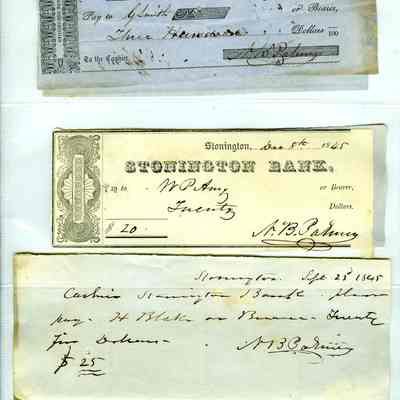 Pay to G Smith or Bearer,
Three Hundred Dollars 100
To the Cashier A. B. Palmer
Stonington, Dec 8th 1845
STONINGTON BANK,
Pay to W P Amy or Bearer,
Twenty Dollars.
$ 20 A. B. Palmer
Stonington Sept 23 1845
Cashier Stonington Bank please
pay H Blake or Bearer Twenty
five Dollars A B Palmer
$ 25